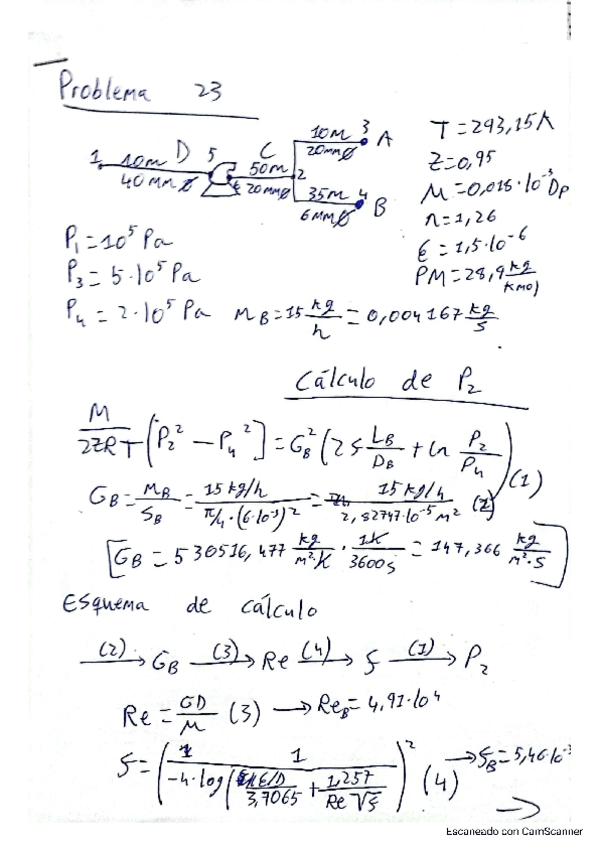 Problema 23
1 10m D 5 C 10m 3 A
40mmφ 50m 20mmφ
20mmφ 2 35m 4 B
6mmφ
T=293,15K
Z=0,95
M=0,018·10⁻³
n=1,26
ε=1,5·10⁻⁶
PM=28,9 kg/Kmol
P₁=10⁵ Pa
P₃=5·10⁵ Pa
P₄=2·10⁵ Pa MB=15 kg/h=0,004167 kg/s
Cálculo de P₂
M/2ZRT [P₂² − P₄²]=GB² (2ς LB/DB + ln P₂/P₄) (1)
GB=MB/SB=15 kg/h / π/4·(6·10⁻³)² = 15 kg/h / 2,82747·10⁻⁵m² (2)
[GB=530516,477 kg/m²·K · 1K/3600s = 147,366 kg/m²·s]
Esquema de cálculo
(2)→ GB (3)→ Re (4)→ ς (1)→ P₂
Re=GD/M (3) → ReB=4,91·10⁴
ς=(1/−4·log(ε/D/3,7065 + 1,257/Re√ς))² (4) → ςB=5,46·10⁻³
Escaneado con CamScanner